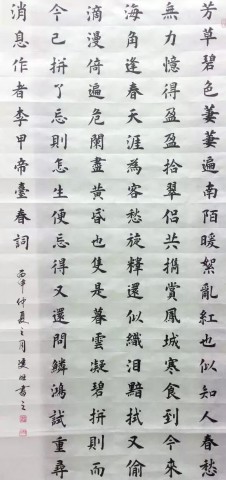 芳草碧色萋萋遍南陌暖絮亂紅也似知人春愁
無力憶得盈盈拾翠侶共攜賞鳳城寒食到今來
海角逢春天涯為客愁旋釋還似織淚黯拭又偷
滴漫倚遍危闌盡黃昏也隻是暮雲凝碧拼則而
今已拼了忘則怎生便忘得又還問鱗鴻試重尋
消息作者李甲帝臺春詞
丙申仲夏之月書之